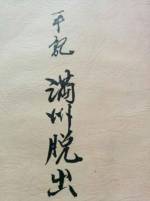 手記
満州脱出